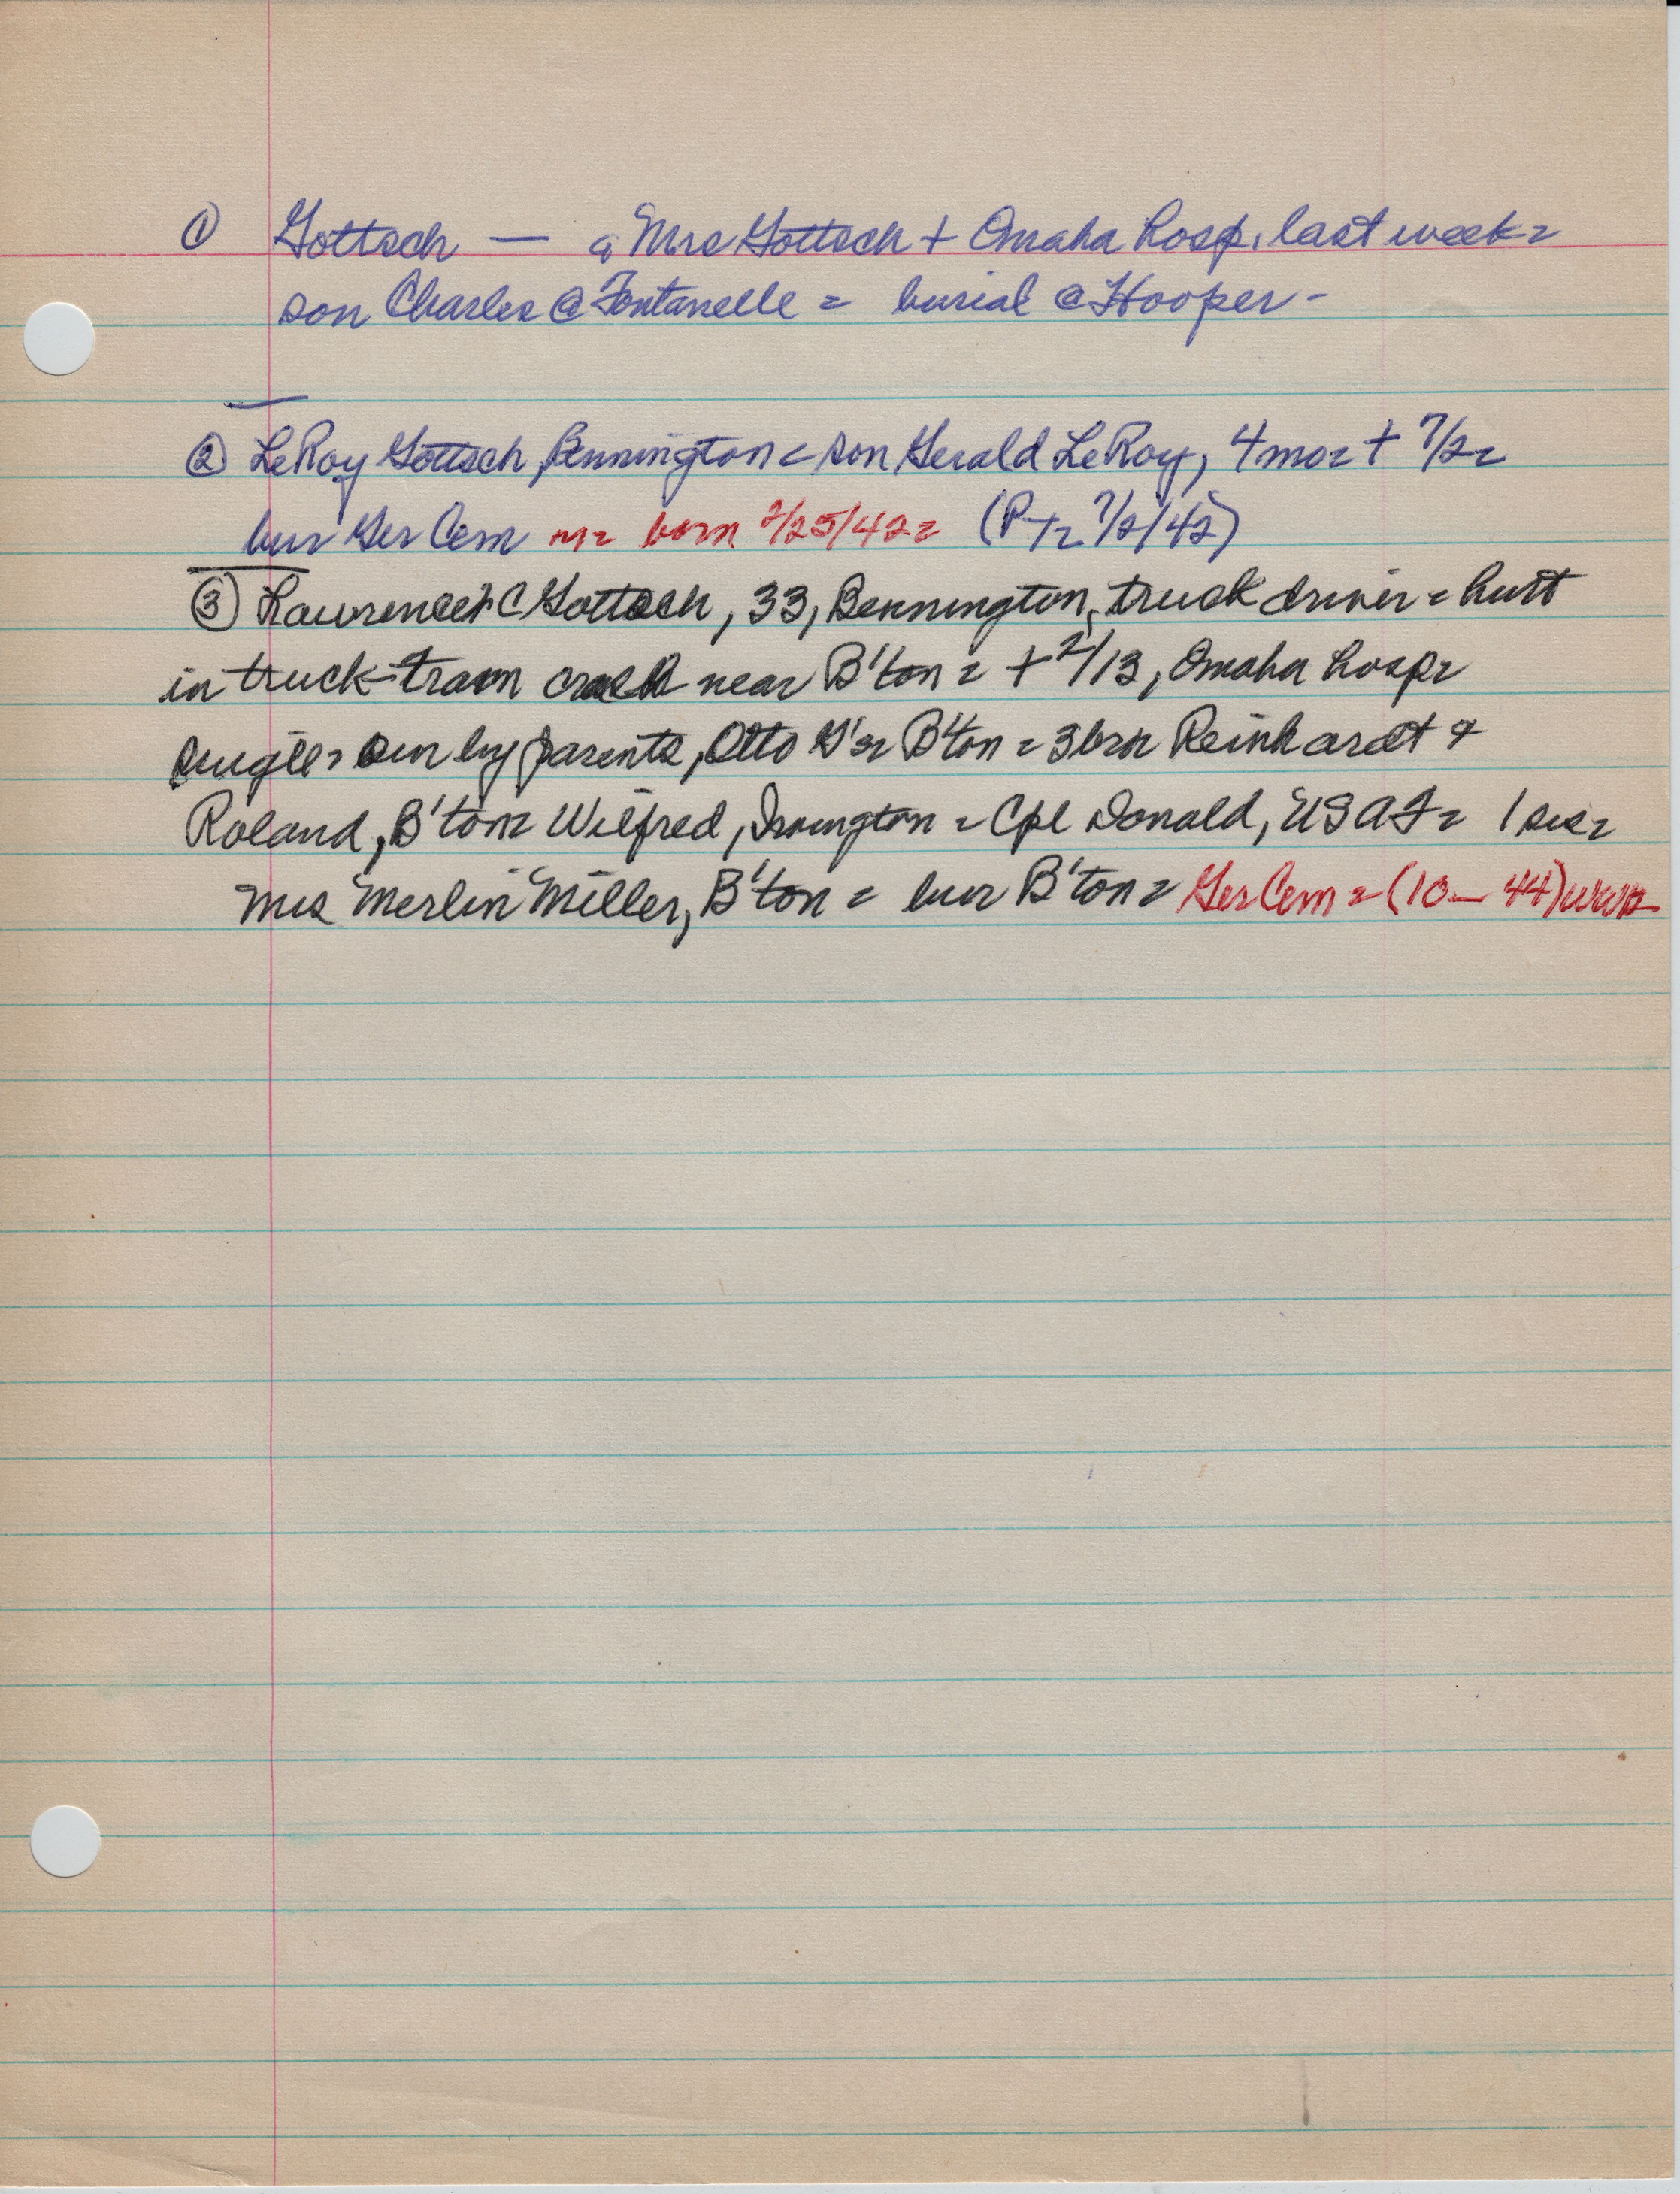 ① Gottsch — a Mrs Gottsch + Omaha hosp. last week =
son Charles @ Fontanelle = burial @ Hooper -
② LeRoy Gottsch, Bennington = son Gerald LeRoy, 4 mos + 7/2 =
bur Ger Cem m = born 2/25/42 = (P + = 7/2/42)
③ Lawrence C Gottsch, 33, Bennington, truck driver = hurt
in truck-train crash near B'ton = + 2/13, Omaha hosp =
single = sur by parents, Otto G's = B'ton = 3 brs Reinhardt &
Roland, B'ton = Wilfred, Irvington = Cpl Donald, USAF = 1 sis =
Mrs Merlin Miller, B'ton = bur B'ton = Ger Cem = (10 — 44)